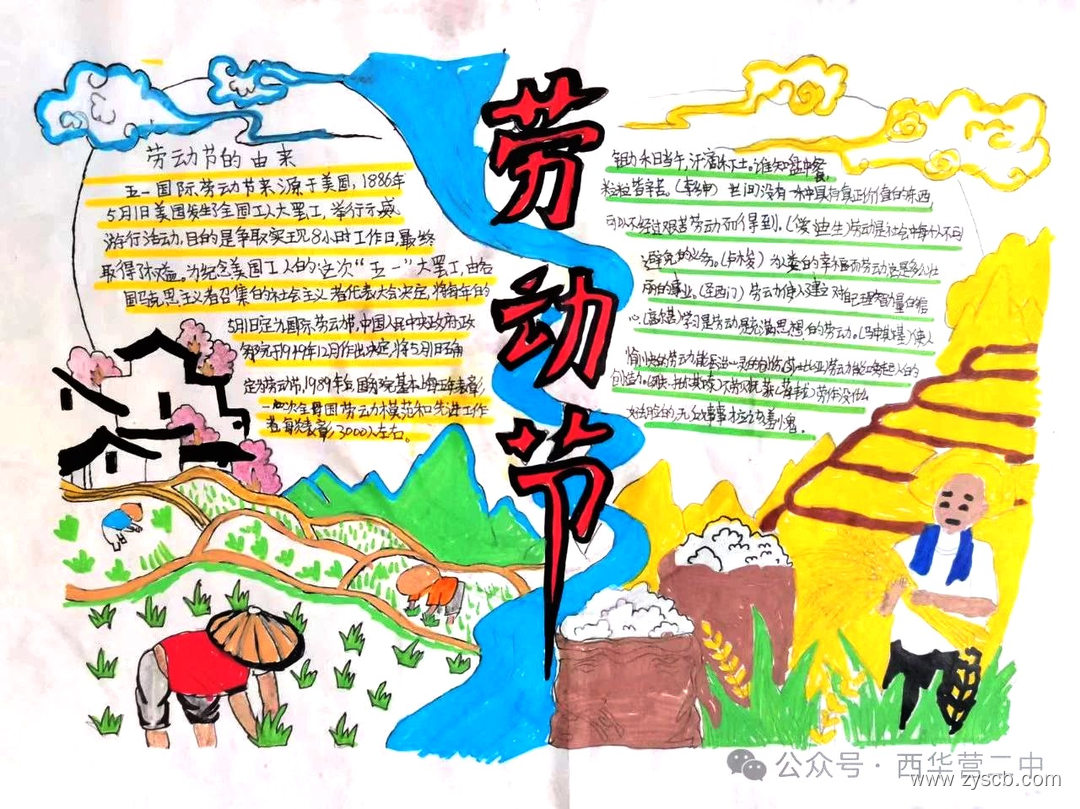 劳动节
劳动节的由来
五一国际劳动节来源于美国,1886年
5月1日美国发生了全国工人大罢工,举行示威
游行活动,目的是争取实现8小时工作日,最终
取得胜利。为纪念美国工人的这次“五一”大罢工,由各
国马克思主义者召集的社会主义者代表大会决定,将每年的
5月1日定为国际劳动节,中国人民中央政府政
务院于1949年12月作出决定,将5月1日确
定为劳动节,1989年后国务院基本上每五年表彰
一次全国劳动模范和先进工作
者,每次表彰3000人左右。
锄禾日当午,汗滴禾下土。谁知盘中餐,
粒粒皆辛苦。(李绅) 世间没有一种具有真正价值的东西,
可以不经过艰苦劳动而得到。(爱迪生)劳动是社会中每个人不可
避免的义务。(卢梭) 为人类的幸福而劳动这是多么壮
丽的事业。(圣西门) 劳动使人建立对自己理智力量的信
心。(高尔基)学习是劳动是充满思想的劳动。(乌申斯基)使人
公众号·西华营二中
www.zyscb.com